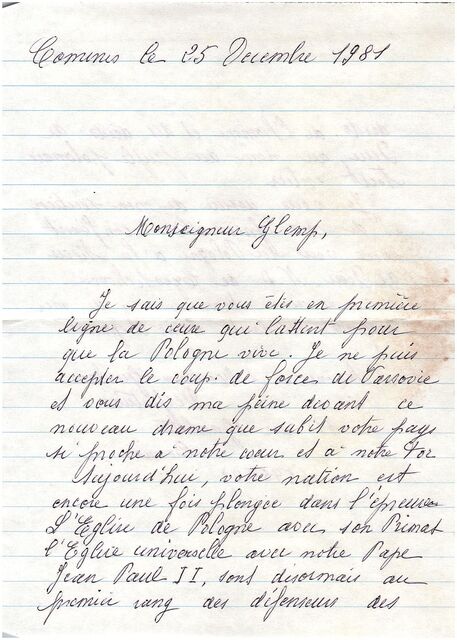 Comines le 25 Decembre 1981
Monseigneur Glemp,
Je sais que vous êtes en première
ligne de ceux qui luttent pour
que la Pologne vive. Je ne puis
accepter le coup de forces de Varsovie
et vous dis ma peine devant ce
nouveau drame que subit votre pays
si proche à notre cœur et à notre Foi
Aujourd'hui, votre nation est
encore une fois plongée dans l'épreuve
L'Eglise de Pologne avec son Primat
l'Eglise universelle avec notre Pape
Jean Paul II, sont désormais au
premier rang des défenseurs des